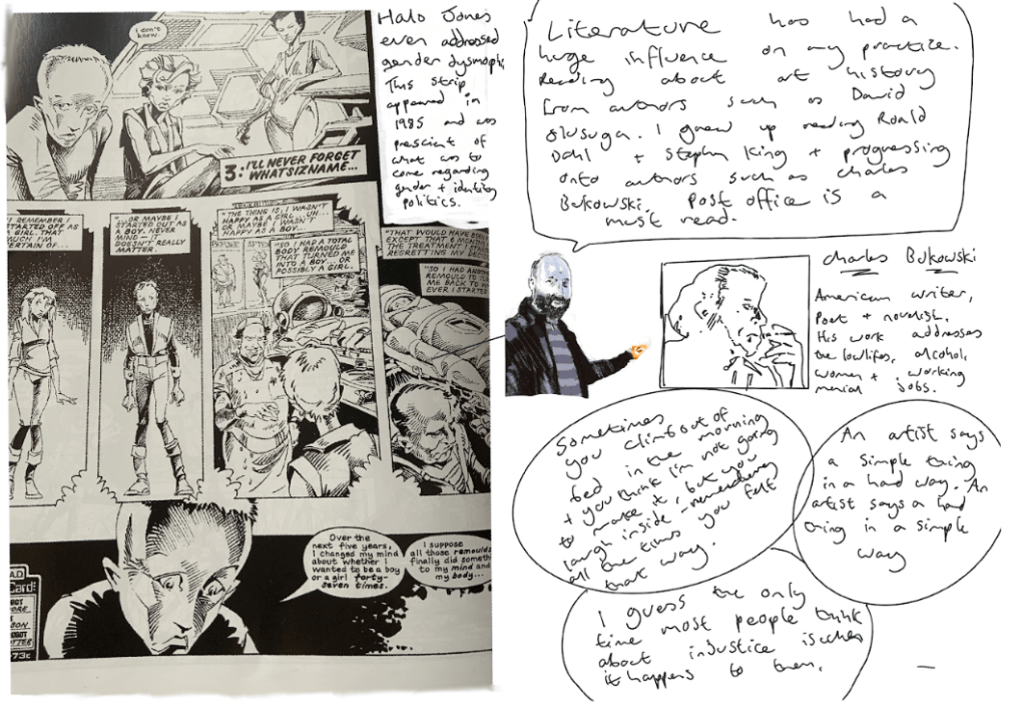 I don't
know.
3: I'LL NEVER FORGET
WHATSIZNAME...
I REMEMBER I
STARTED OFF AS
A GIRL. THAT
MUCH I'M
CERTAIN OF...
"...OR MAYBE I
STARTED OUT AS
A BOY. NEVER
MIND — IT
DOESN'T REALLY
MATTER.
"THE THING IS, I WASN'T
HAPPY AS A GIRL... UH...
OR MAYBE I WASN'T
HAPPY AS A BOY...
"SO I HAD A TOTAL
BODY REMOULD
THAT TURNED ME
INTO A BOY... OR
POSSIBLY A GIRL.
"THAT WOULD HAVE
EXCEPT THAT 6 MONTH
THE TREATMENT, I
REGRETTING MY DEC
"SO I HAD ANO
REMOULD TO
ME BACK TO
EVER I STARTE
Over the
next five years,
I changed my mind
about whether I
wanted to be a boy
or a girl forty-
seven times.
I suppose
all those remoulds
finally did someth
to my mind and
my body...
Card:
Halo Jones
even addressed
gender dysmorph
This strip
appeared in
1985 and was
prescient of
what was to
come regarding
gender + identity
politics.
Literature has had a
huge influence on my practice.
Reading about art history
from authors such as David
Olusuga. I grew up reading Roald
Dahl + Stephen King + progressing
onto authors such as Charles
Bukowski. Post office is a
must read.
Charles Bukowski
American writer,
Poet + novelist.
His work addresses
the lowlifes, alcohol,
women + working
menial jobs.
Sometimes
you climb out of
bed in the morning
+ you think I'm not going
to make it, but you
laugh inside - remembering
all the times you felt
that way.
An artist says
a simple thing
in a hard way. An
artist says a hard
thing in a simple
way
I guess the only
time most people think
about injustice is when
it happens to them.